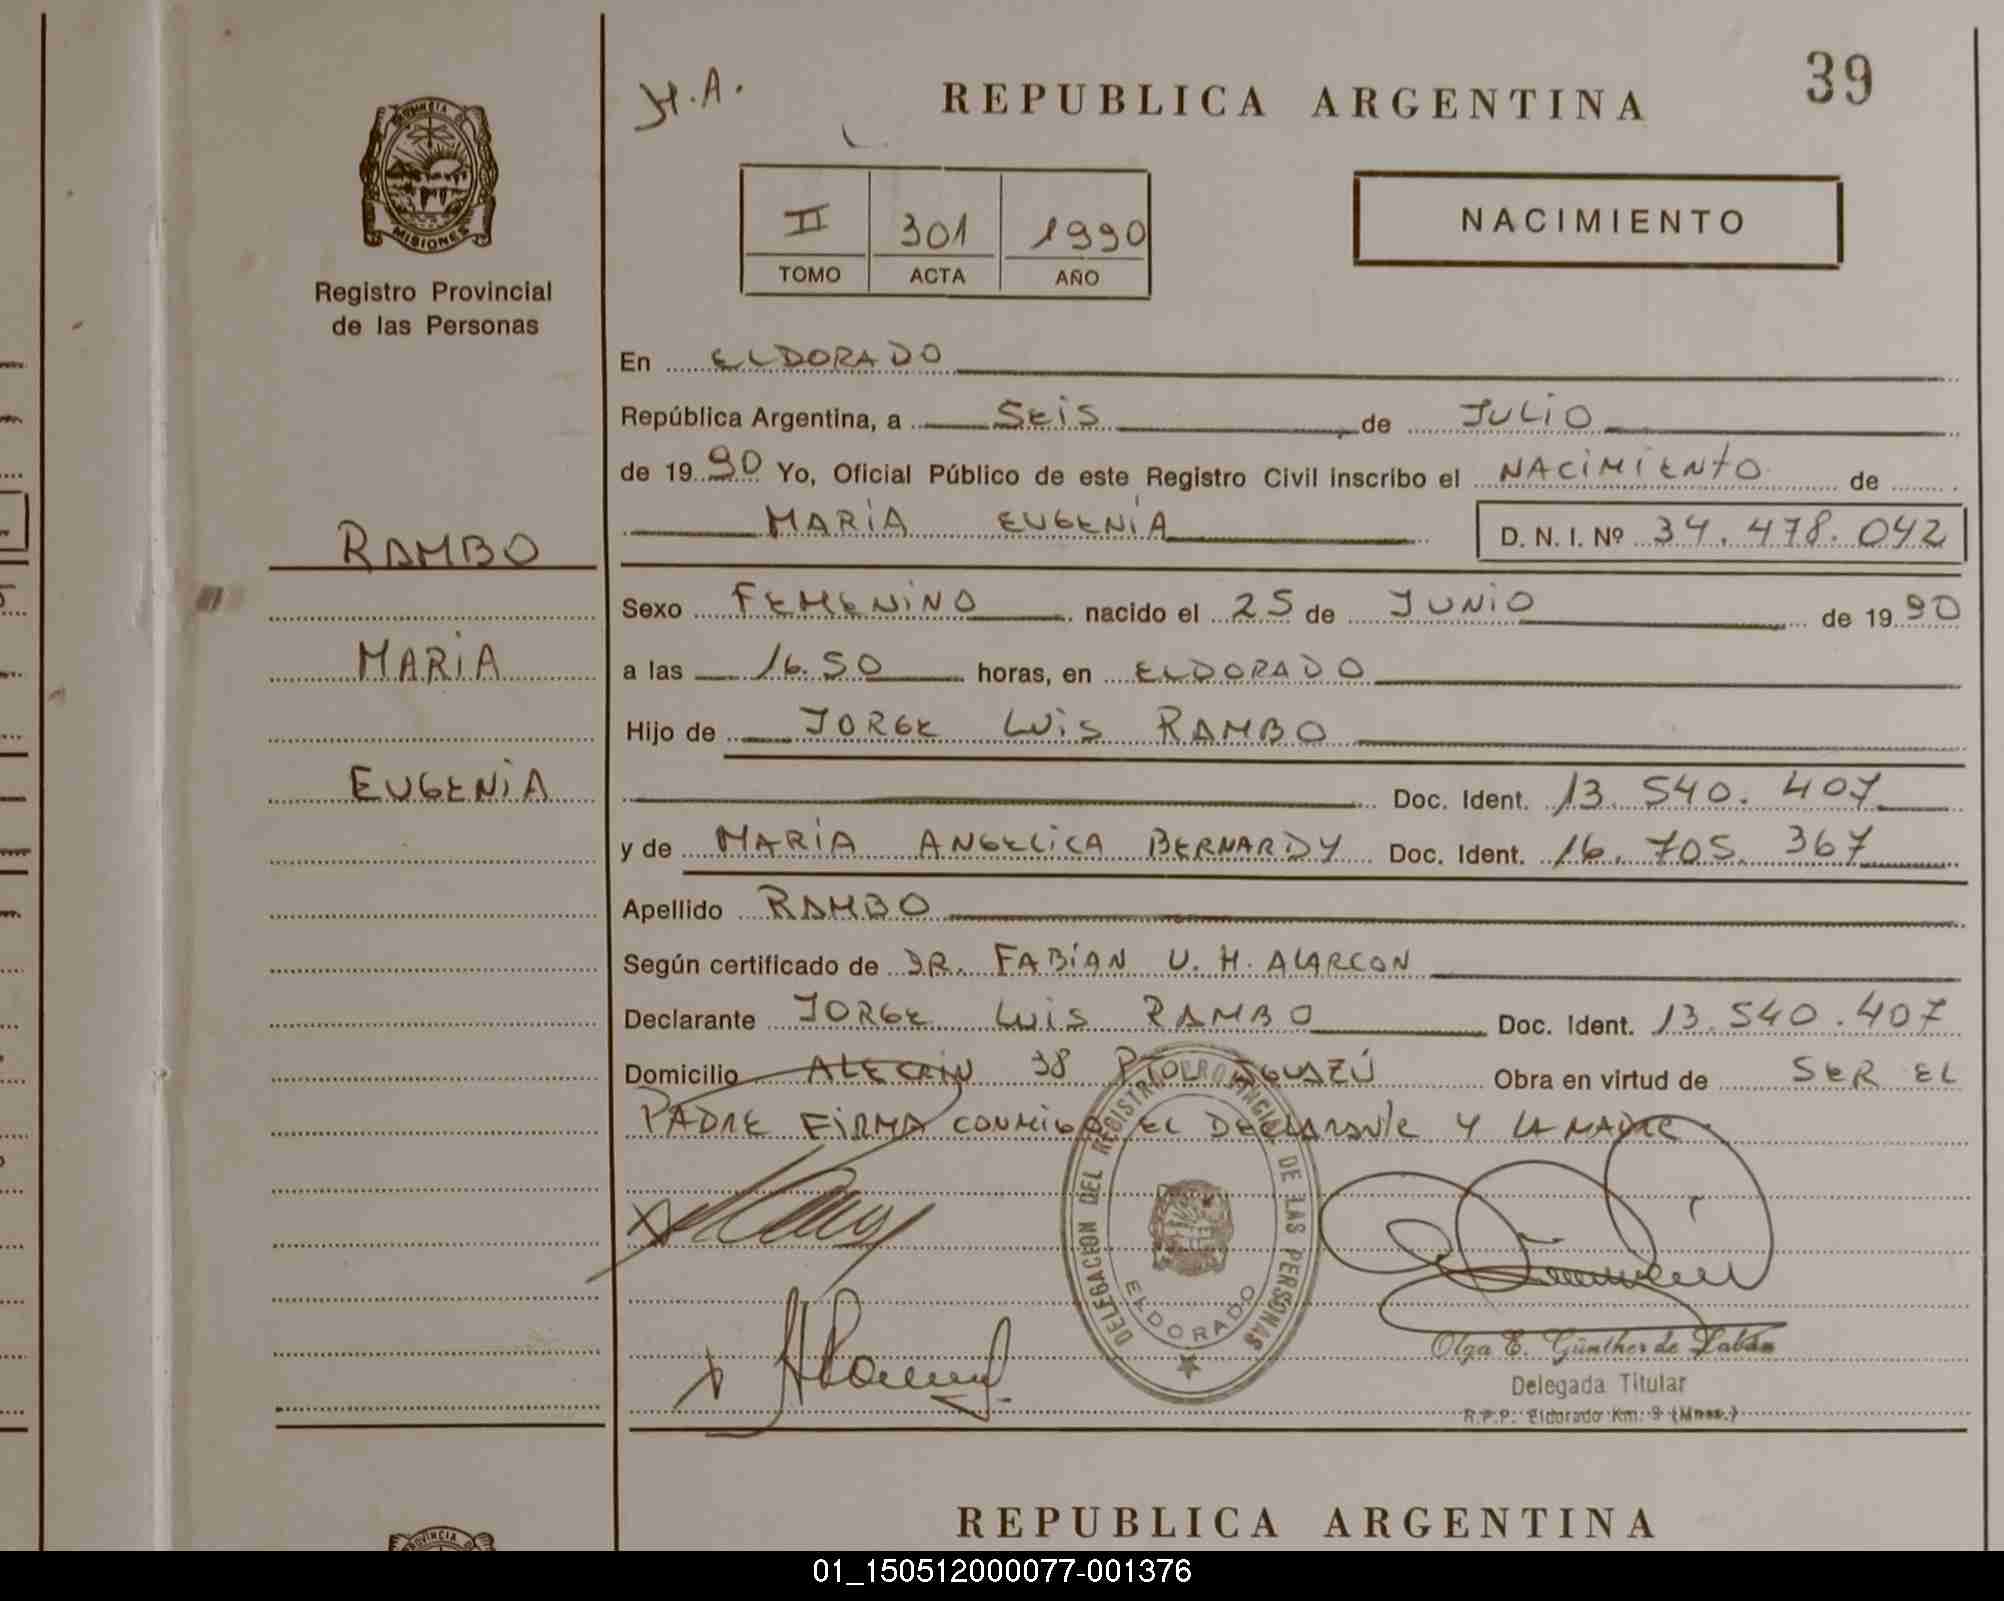 H.A.
REPUBLICA ARGENTINA
39
PROVINCIA D
MISIONES
Registro Provincial
de las Personas
II 301 1990
TOMO ACTA AÑO
NACIMIENTO
En ELDORADO
República Argentina, a SEIS de JULIO
de 1990 Yo, Oficial Público de este Registro Civil inscribo el NACIMIENTO de
MARIA EUGENIA D. N. I. Nº 34.478.042
RAMBO
MARIA
EUGENIA
Sexo FEMENINO nacido el 25 de JUNIO de 1990
a las 16.50 horas, en ELDORADO
Hijo de JORGE LUIS RAMBO
Doc. Ident. 13.540.407
y de MARIA ANGELICA BERNARDY Doc. Ident. 16.705.367
Apellido RAMBO
Según certificado de DR. FABIAN U. H. ALARCON
Declarante JORGE LUIS RAMBO Doc. Ident. 13.540.407
Domicilio ALECRIN 38 PTO IGUAZÚ Obra en virtud de SER EL
PADRE FIRMA CONMIGO EL DECLARANTE Y LA MADRE
DELEGACION DEL REGISTRO PROVINCIAL DE LAS PERSONAS
ELDORADO
Olga E. Günther de Zabán
Delegada Titular
R.P.P. Eldorado Km. 9 (Mnes.)
REPUBLICA ARGENTINA
PROVINCIA
01_150512000077-001376